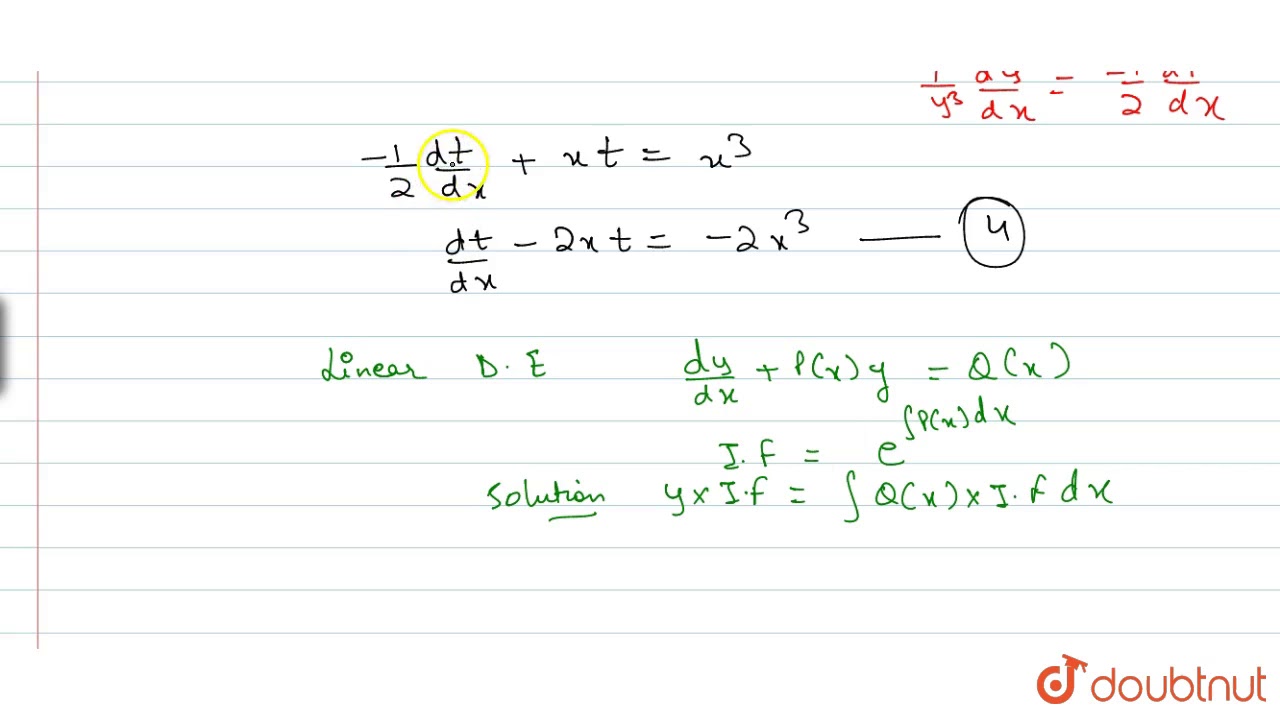 1/y³ dy/dx = -1/2 dt/dx
-1/2 dt/dx + xt = x³
dt/dx - 2xt = -2x³ —— 4
Linear D.E dy/dx + P(x)y = Q(x)
I.f = e^∫P(x)dx
Solution y x I.f = ∫Q(x) x I.f dx
doubtnut